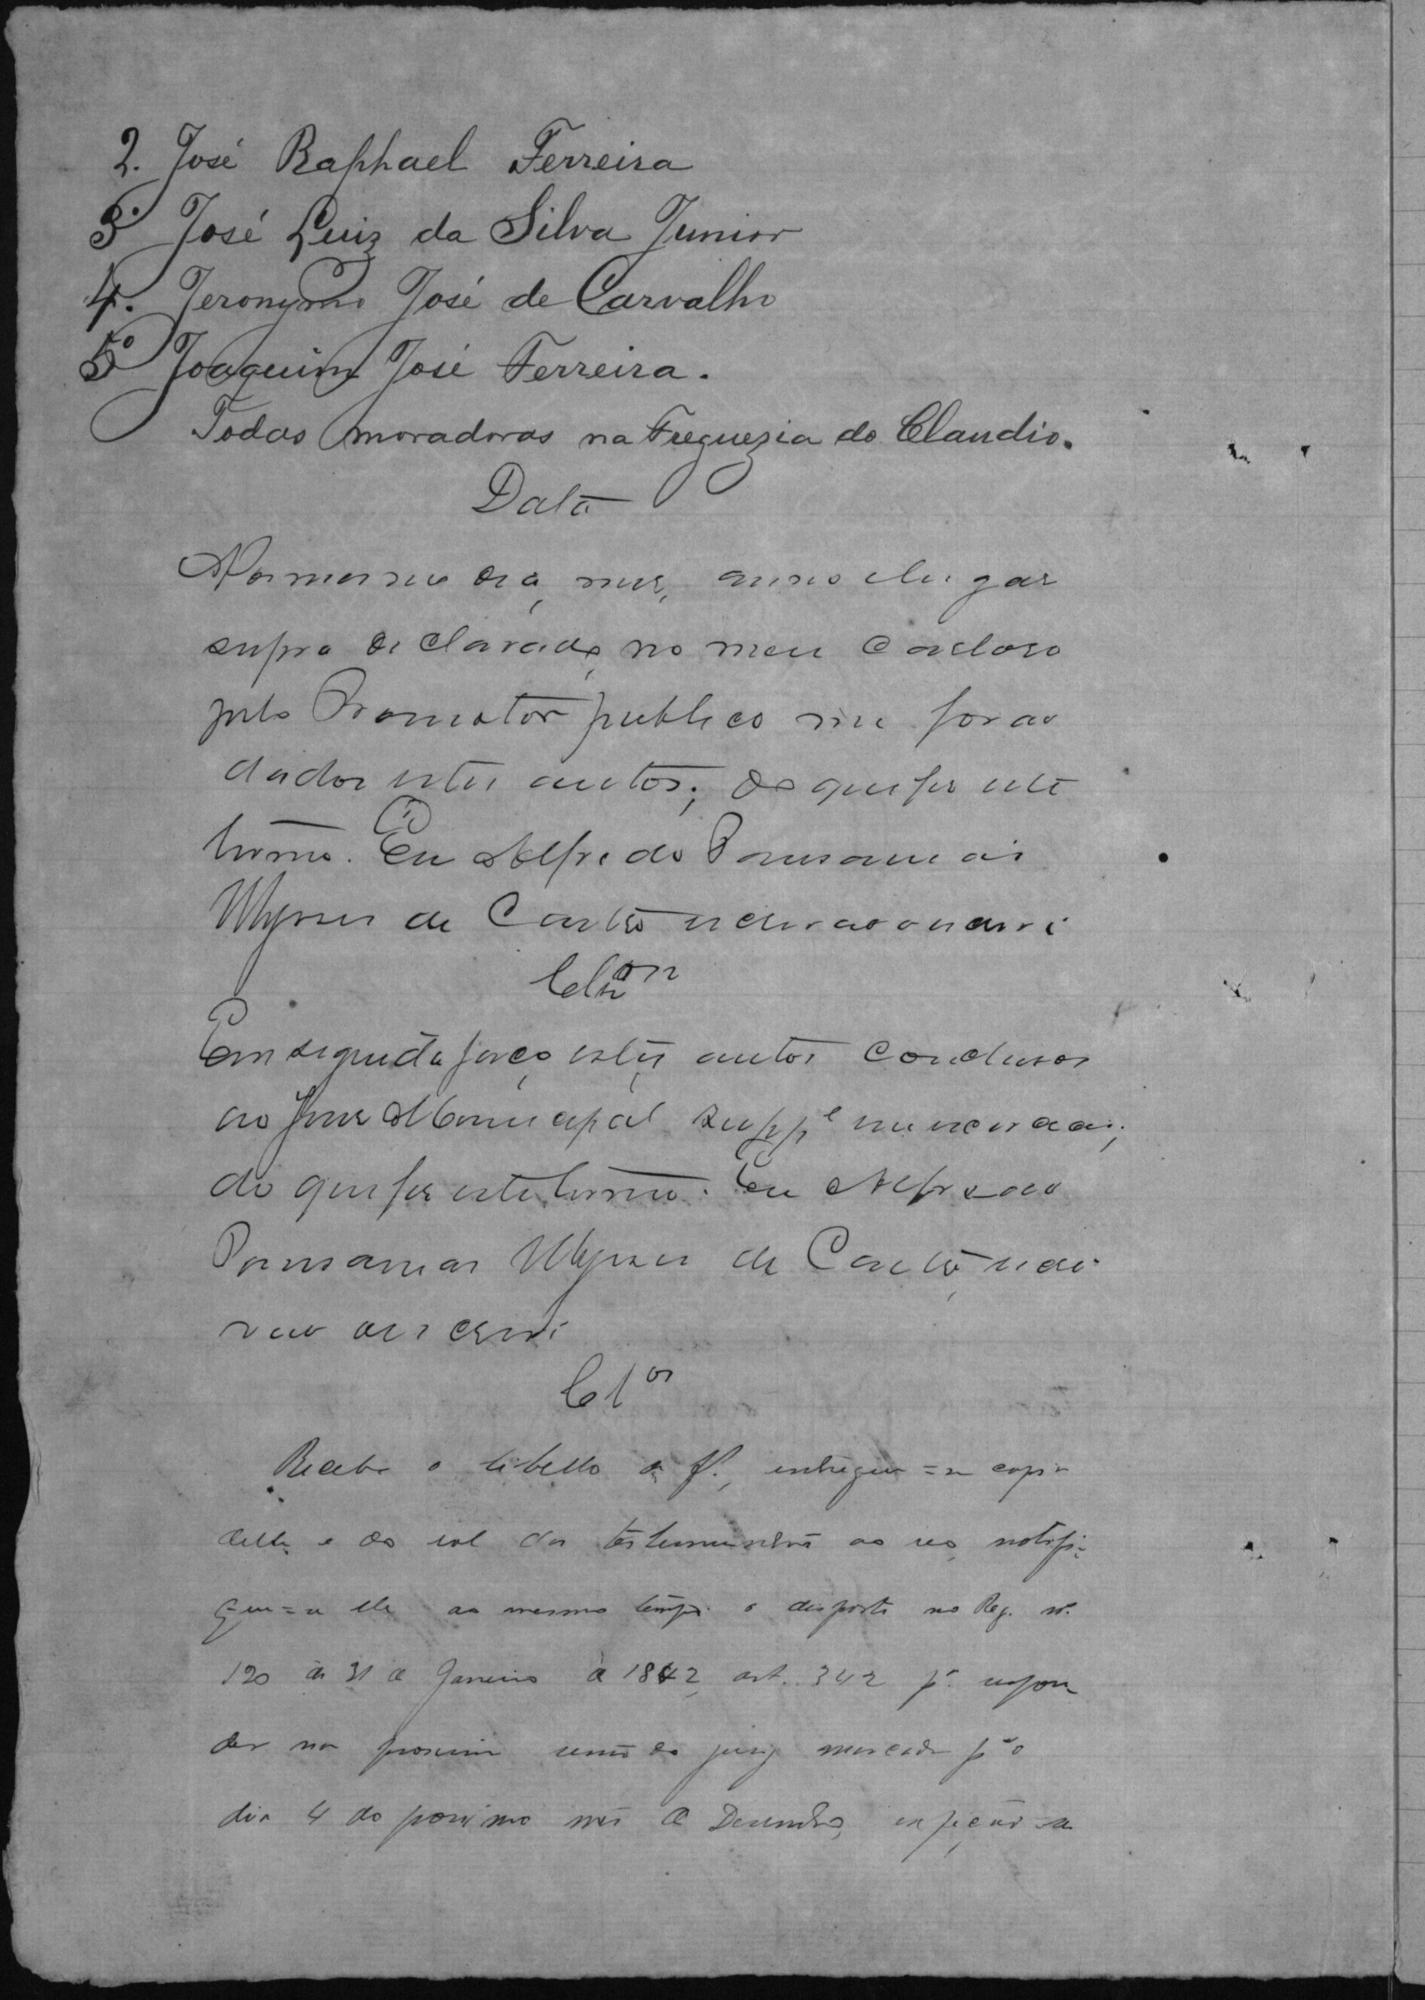 2. José Raphael Ferreira
3º José Luiz da Silva Junior
4. Jeronymo José de Carvalho
5º Joaquim José Ferreira.
Todos moradores na Freguezia do Claudio.
Data
No mesmo dia, mez, anno e lugar
supra declarado, no meu cartorio
pelo Promotor publico me forão
dados estes autos; do que fiz este
termo. Eu Alfredo
Ulysses de Castro escrivão o escrevi
Clsº
Em seguida faço estes autos conclusos
ao Juiz Municipal suppe em exercicio;
do que fiz este termo. Eu Alfredo
Ulysses de Castro, escri-
vão o escrevi
Clos
Recebo o libello de f., entregue=se copia
delle e do rol das testemunhas ao reo, notifi-
que=se elle ao mesmo tempo o disposto no Reg. nº
120 de 31 de Janeiro de 1842, art. 342 pª respon
der na proxima sessão do jury marcada pª o
dia 4 do proximo mes de Dezembro,